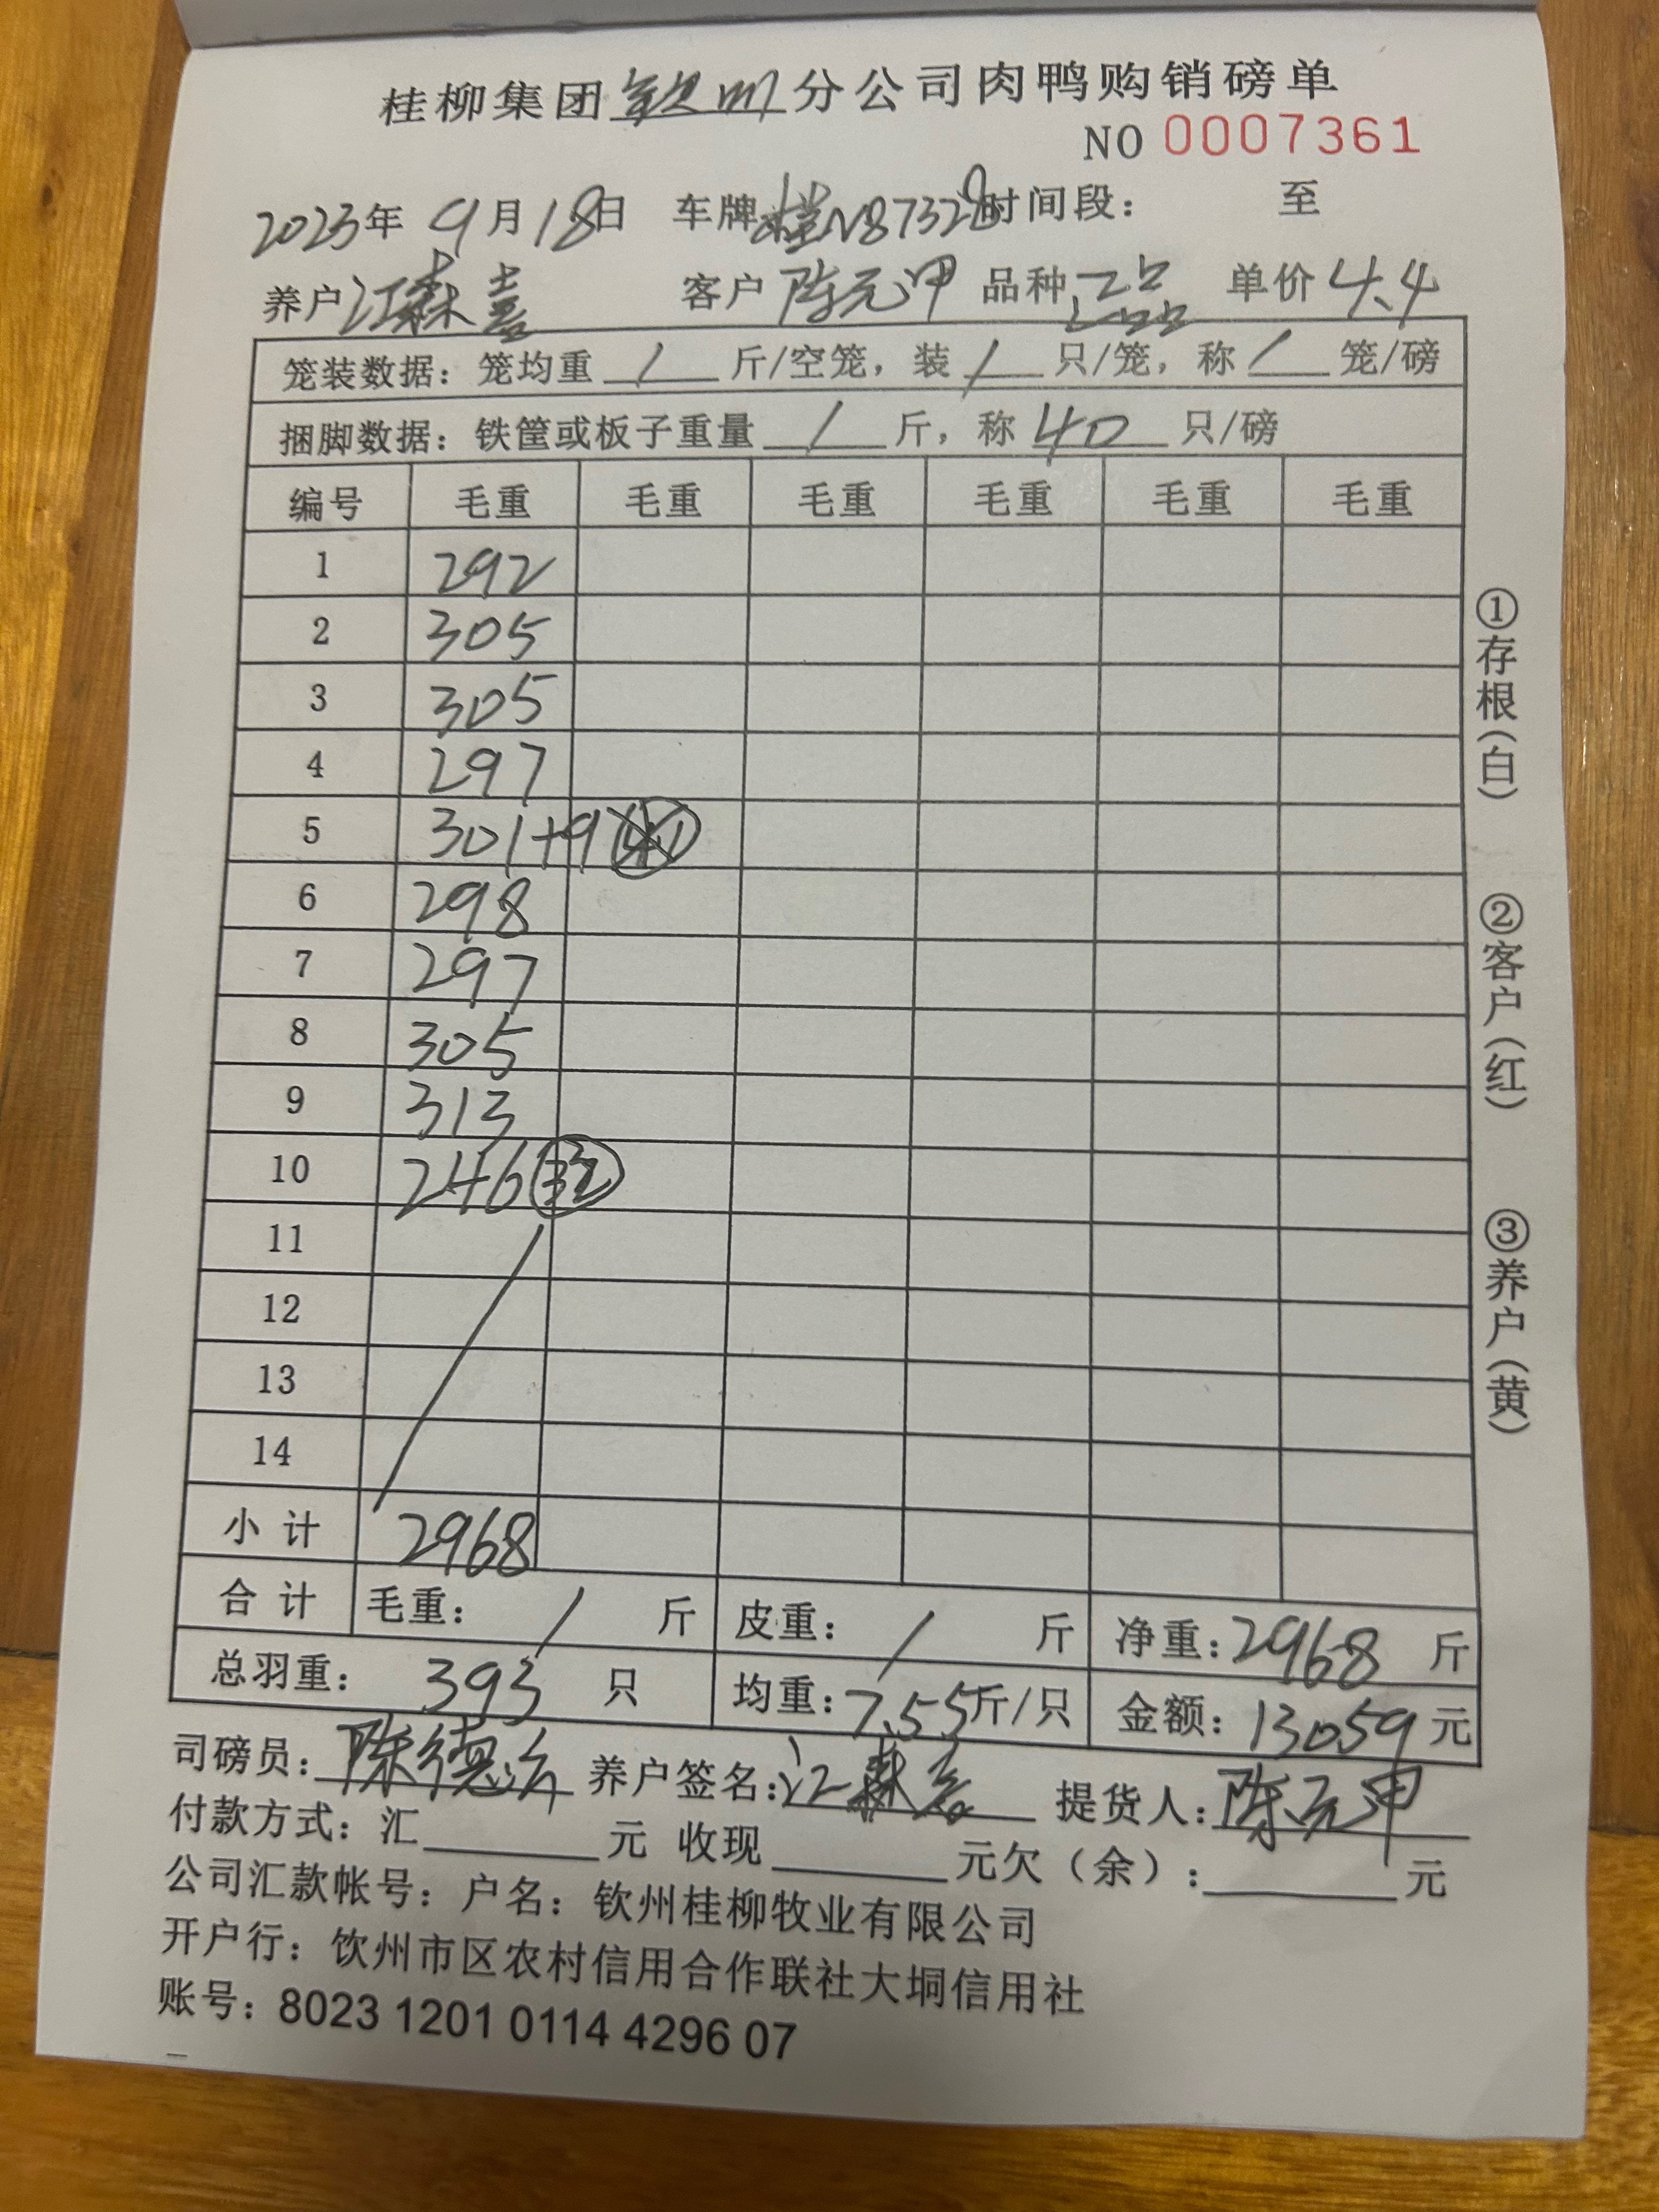 桂柳集团钦州分公司肉鸭购销磅单
NO 0007361
2023年 9月18日 车牌桂N87328时间段： 至
养户江森喜 客户陈元甲 品种 单价4.4
笼装数据：笼均重 / 斤/空笼，装 / 只/笼，称 / 笼/磅
捆脚数据：铁筐或板子重量 / 斤，称 40 只/磅
编号 毛重 毛重 毛重 毛重 毛重 毛重
1 292
2 305
3 305
4 297
5 301+9
6 298
7 297
8 305
9 313
10 246
11
12
13
14
小计 2968
合计 毛重： / 斤 皮重： / 斤 净重：2968 斤
总羽重： 393 只 均重：7.55斤/只 金额：13059元
司磅员：陈德 养户签名：江森喜 提货人：陈元甲
付款方式：汇 元 收现 元欠（余）： 元
公司汇款帐号：户名：钦州桂柳牧业有限公司
开户行：钦州市区农村信用合作联社大垌信用社
账号：8023 1201 0114 4296 07
①存根(白)
②客户(红)
③养户(黄)